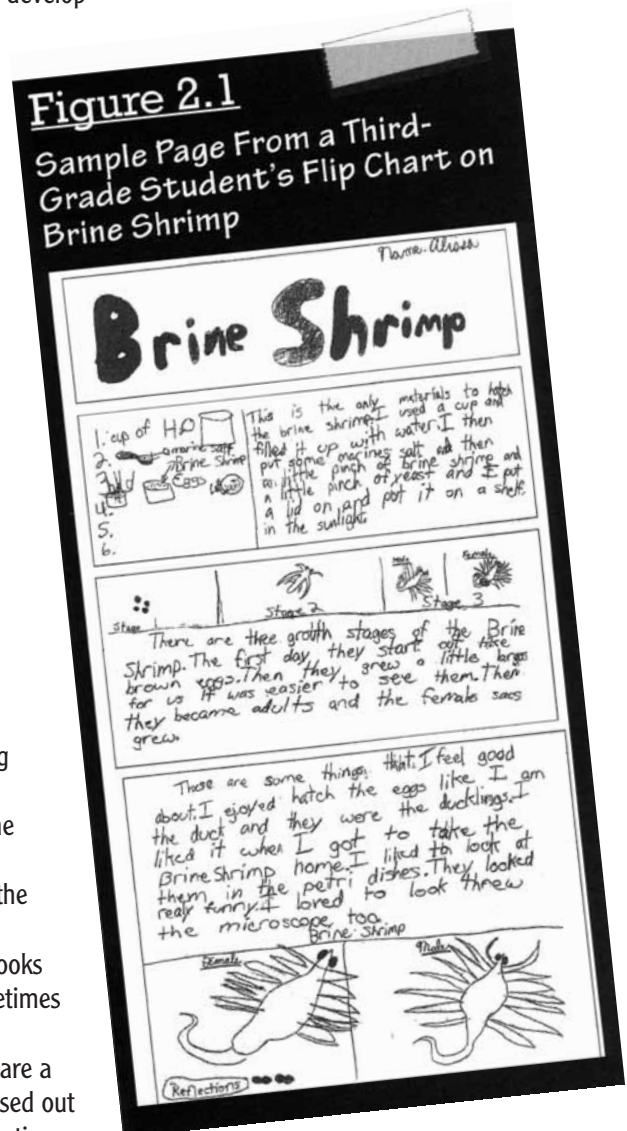 develop
Figure 2.1
Sample Page From a Third-
Grade Student's Flip Chart on
Brine Shrimp
Name-Alissa
Brine Shrimp
1. cup of H2O
2. marine salt
3. Brine Shrimp
Eggs
4.
5.
6.
This is the only materials to hatch
the brine shrimp. I used a cup and
filled it up with water. I then
put some marines salt and then
a little pinch of brine shrimp and
a little pinch of yeast and I put
a lid on and pot it on a shelf
in the sunlight.
Stage 1
Stage 2
Male
Female
Stage 3
There are thee groth stages of the Brine
Shrimp. The first day they start out like
brown eggs. Then they grew a little
for us it was easier to see them. Then
they became adults and the female sacs
grew.
These are some things that I feel good
about. I ejoyed hatch the eggs like I am
the duck and they were the ducklings. I
liked it when I got to take the
Brine Shrimp home. I liked to look at
them in the petri dishes. They looked
realy funny. I loved to look threw
the microscope too.
Brine Shrimp
Female
Male
Reflections
g
ne
the
ooks
etimes
are a
sed out